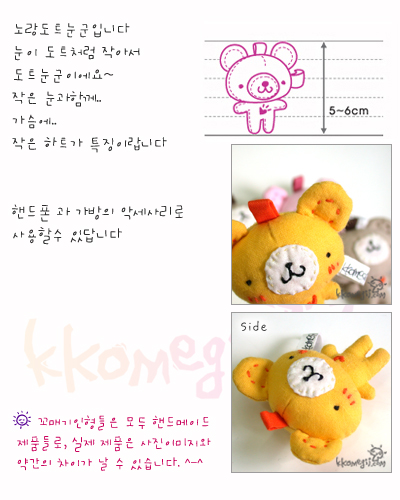 노랑도트눈군입니다
눈이 도트처럼 작아서
도트눈군이에요~
작은 눈과함께..
가슴에..
작은 하트가 특징이랍니다
5~6cm
핸드폰 과 가방의 악세사리로
사용할수 있답니다
Side
꼬매기인형들은 모두 핸드메이드
제품들로, 실제 제품은 사진이미지와
약간의 차이가 날 수 있습니다. ^-^